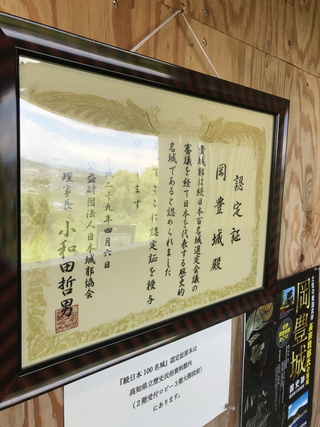 認定証
岡豊城殿
貴城郭は続日本百名城選定会議の
審議を経て日本を代表する歴史的
名城であると認められました
ここに認定証を授与
します
二十九年四月六日
財団法人日本城郭協会
理事長 小和田哲男
『続日本100名城』認定証原本は
高知県立歴史民俗資料館内
(2階受付ロビー3階大棚段前)
にあります。
岡豊城